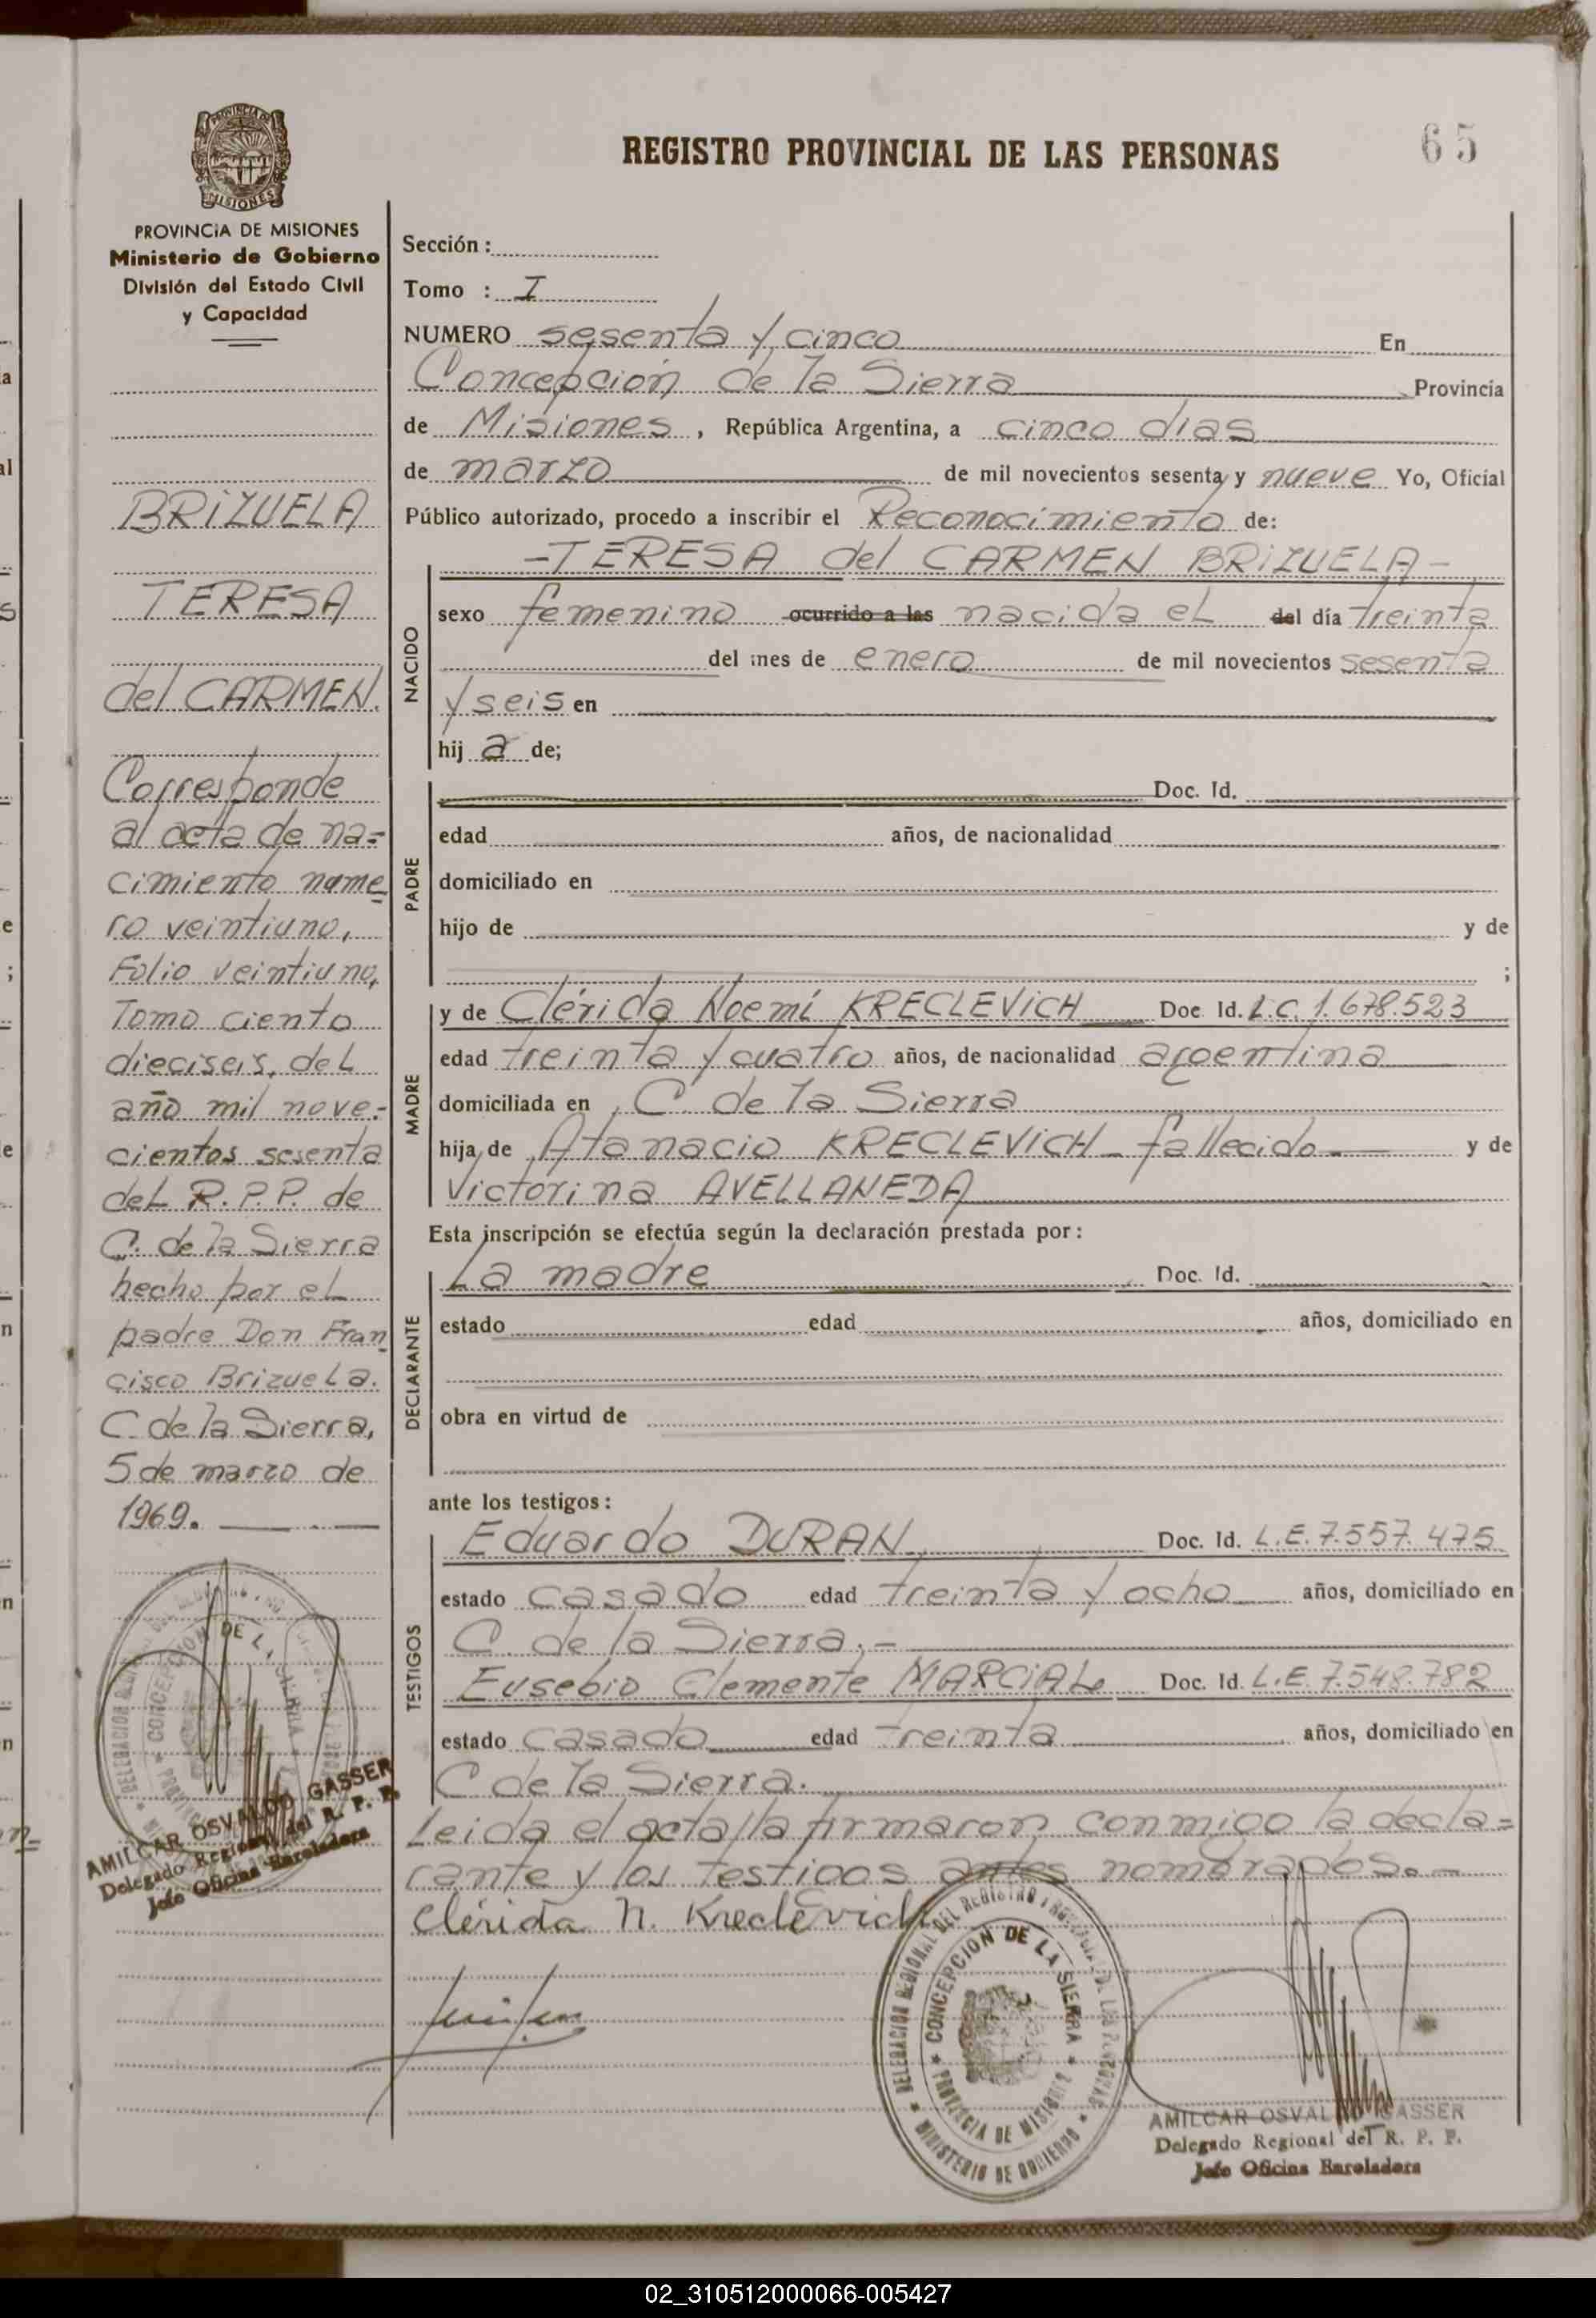 65
REGISTRO PROVINCIAL DE LAS PERSONAS
PROVINCIA DE MISIONES
MISIONES
PROVINCIA DE MISIONES
Ministerio de Gobierno
División del Estado Civil
y Capacidad
BRIZUELA
TERESA
del CARMEN.
Corresponde
al acta de na=
cimiento nume
ro veintiuno,
Folio veintiuno,
Tomo ciento
dieciseis, del
año mil nove-
cientos sesenta
del R.P.P. de
C. de la Sierra
hecho por el
padre Don Fran
cisco Brizuela.
C. de la Sierra,
5 de marzo de
1969.
AMILCAR OSVALDO GASSER
Delegado Regional del R. P. P.
Jefe Oficina Enroladora
Sección :
Tomo : I
NUMERO sesenta y cinco En
Concepción de la Sierra Provincia
de Misiones, República Argentina, a cinco dias
de marzo de mil novecientos sesenta y nueve Yo, Oficial
Público autorizado, procedo a inscribir el Reconocimiento de:
-TERESA del CARMEN BRIZUELA-
NACIDO
sexo femenino ocurrido a las nacida el del día treinta
del mes de enero de mil novecientos sesenta
y seis en
hij a de;
PADRE
Doc. Id.
edad años, de nacionalidad
domiciliado en
hijo de y de
;
MADRE
y de Clérida Noemí KRECLEVICH Doc Id. L.C. 1.678.523
edad treinta y cuatro años, de nacionalidad argentina
domiciliada en C. de la Sierra
hija de Atanacio KRECLEVICH - fallecido y de
Victorina AVELLANEDA
Esta inscripción se efectúa según la declaración prestada por:
DECLARANTE
La madre Doc. Id.
estado edad años, domiciliado en
obra en virtud de
ante los testigos:
TESTIGOS
Eduardo DURAN Doc. Id. L.E. 7.557.475
estado casado edad treinta y ocho años, domiciliado en
C. de la Sierra.-
Eusebio Clemente MARCIAL Doc. Id. L.E. 7.548.782
estado casado edad treinta años, domiciliado en
C de la Sierra.
Leida el acta, la firmaron conmigo la decla=
rante y los testigos antes nombrados.-
Clérida N. Kreclevich
DELEGACION REGIONAL DEL REGISTRO PROVINCIAL DE LAS PERSONAS
CONCEPCION DE LA SIERRA
PROVINCIA DE MISIONES
MINISTERIO DE GOBIERNO
AMILCAR OSVALDO GASSER
Delegado Regional del R. P. P.
Jefe Oficina Enroladora
02_310512000066-005427